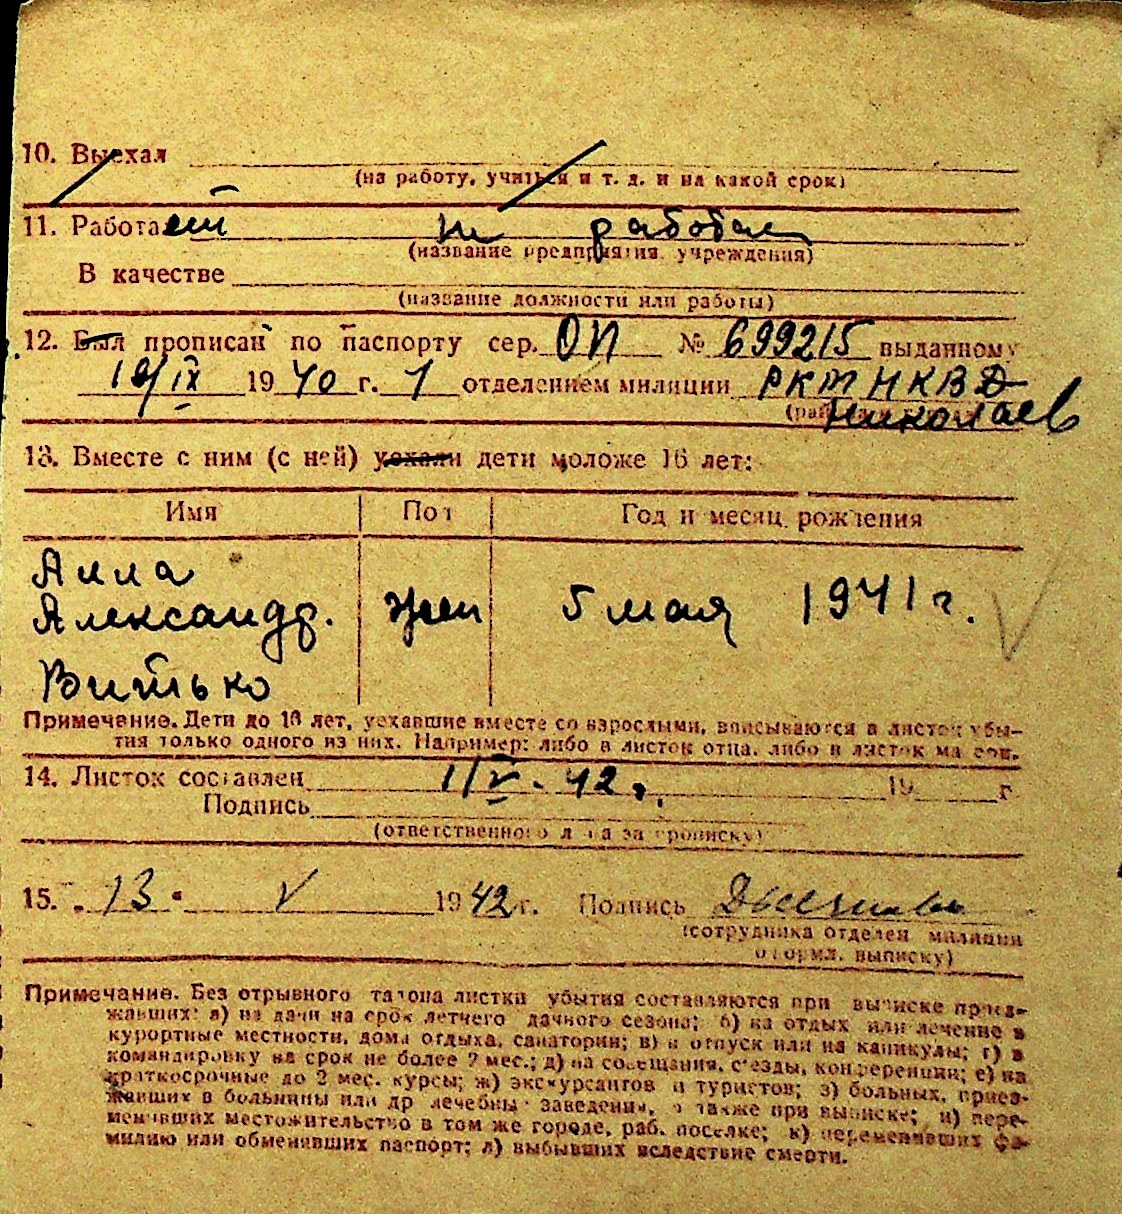 10. Выехал
(на работу, учиться и т. д. и на какой срок)
11. Работает не работает
(название предприятия, учреждения)
В качестве
(название должности или работы)
12. Был прописан по паспорту сер. ОП № 699215 выданному
19/IX 1940 г. 1 отделением милиции РКМ НКВД
Николаев
13. Вместе с ним (с ней) уехали дети моложе 16 лет:
Имя Пол Год и месяц рождения
Алла
Александр. жен 5 мая 1941 г.
Витько
Примечание. Дети до 16 лет, уехавшие вместе со взрослыми, вписываются в листок убы-
тия только одного из них. Например: либо в листок отца, либо в листок матери.
14. Листок составлен 1/V - 42 г. 19 г
Подпись
(ответственного лица за прописку)
15. 13 V 1942 г. Подпись
(сотрудника отделен. милиции
оформл. выписку)
Примечание. Без отрывного талона листки убытия составляются при выписке приез-
жавших: а) на дачи на срок летнего дачного сезона; б) на отдых или лечение в
курортные местности, дома отдыха, санатории; в) в отпуск или на каникулы; г) в
командировку на срок не более 2 мес.; д) на совещания, съезды, конференции; е) на
краткосрочные до 2 мес. курсы; ж) экскурсантов и туристов; з) больных, приез-
жавших в больницы или др лечебны заведения, а также при выписке; и) пере-
менивших местожительство в том же городе, раб. поселке; к) переменивших фа-
милию или обменявших паспорт; л) выбывших вследствие смерти.